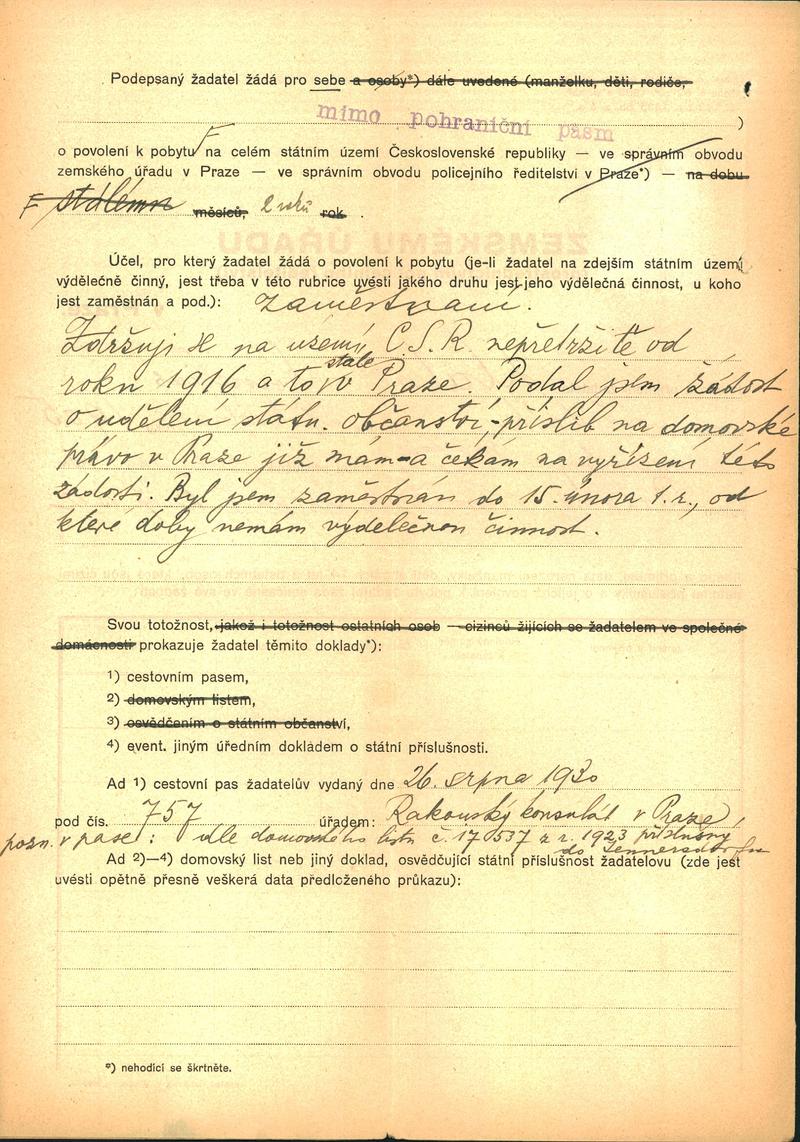 Podepsaný žadatel žádá pro sebe a osoby*) dále uvedené (manželku, děti, rodiče,
mimo pohraniční pásm
)
o povolení k pobytu na celém státním území Československé republiky — ve správním obvodu
zemského úřadu v Praze — ve správním obvodu policejního ředitelství v Praze*) — na dobu
stálému měsíců, 2 roků rok .
Účel, pro který žadatel žádá o povolení k pobytu (je-li žadatel na zdejším státním území
výdělečně činný, jest třeba v této rubrice uvésti jakého druhu jest jeho výdělečná činnost, u koho
jest zaměstnán a pod.): zaměstnání.
Zdržuji se na území Č.S.R. nepřetržitě od
stále
roku 1916 a to v Praze. Podal jsem žádost
o udělení státn. občanství, - příslib na domovské
právo v Praze již mám - a čekám na vyřízení této
žádosti. Byl jsem zaměstnán do 15. února t.r., od
které doby nemám výdělečnou činnost.
Svou totožnost, jakož i totožnost ostatních osob — cizinců žijících se žadatelem ve společné
domácnosti prokazuje žadatel těmito doklady*):
1) cestovním pasem,
2) domovským listem,
3) osvědčením o státním občanství,
4) event. jiným úředním dokladem o státní příslušnosti.
Ad 1) cestovní pas žadatelův vydaný dne 26. srpna 1930
pod čís. 757 úřadem: Rakouský konsulát v Praze,
pozn. v pase: dle domovského listu č. 170537 z r. 1923 příslušný
do Jennersdorfu
Ad 2)—4) domovský list neb jiný doklad, osvědčující státní příslušnost žadatelovu (zde jest
uvésti opětně přesně veškerá data předloženého průkazu):
*) nehodící se škrtněte.